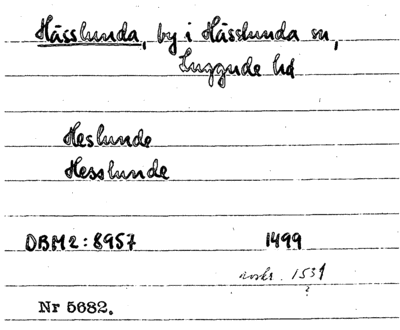 Hässlunda, by i Hässlunda sn,
Luggude hd
Heslunde
Hesslunde
DBM2:8957 1499
avskr. 1531
?
Nr 5682.